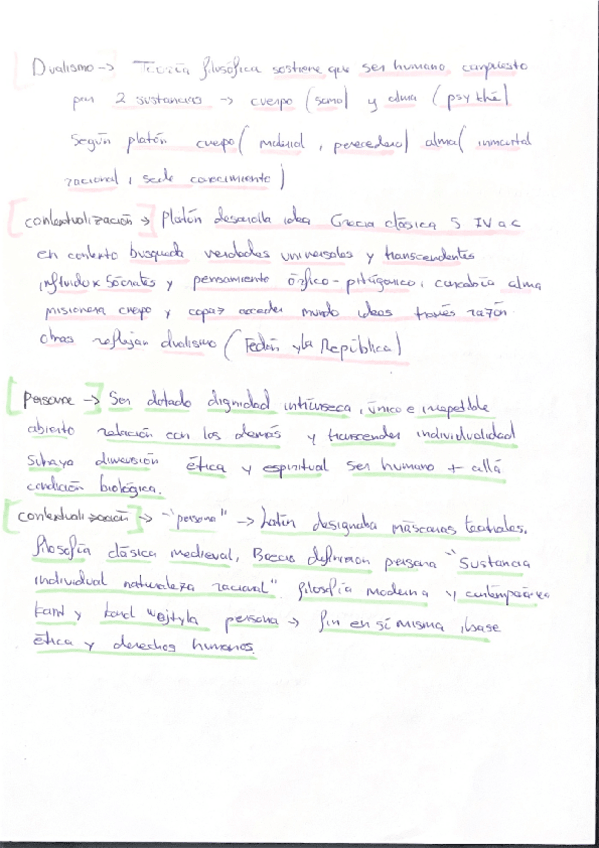 Dualismo -> Teoría filosófica sostiene que ser humano compuesto
por 2 sustancias -> cuerpo (soma) y alma (psyché)
según platón cuerpo (material, perecedero) alma (inmortal
racional, sede conocimiento)
[contextualización -> Platón desarrolla idea Grecia clásica S IV a c
en contexto busqueda verdades universales y transcendentes
influido x Sócrates y pensamiento órfico-pitágorico, alma
cuerpo y capaz acceder mundo ideas través razón
obras reflejan dualismo (Fedón y la República)
[persona -> Ser dotado dignidad intrínseca, único e irrepetible
abierto relación con los demás y transcender individualidad
Subraya dimensión ética y espiritual ser humano + allá
condición biológica.
[contextualización] -> "persona" -> Latín designaba máscaras teatrales.
filosofía clásica medieval, Boecio persona "Sustancia
individual naturaleza racional". filosofía moderna y contemporánea
kant y karol wojtyla persona -> fin en sí misma, base
ética y derechos humanos.